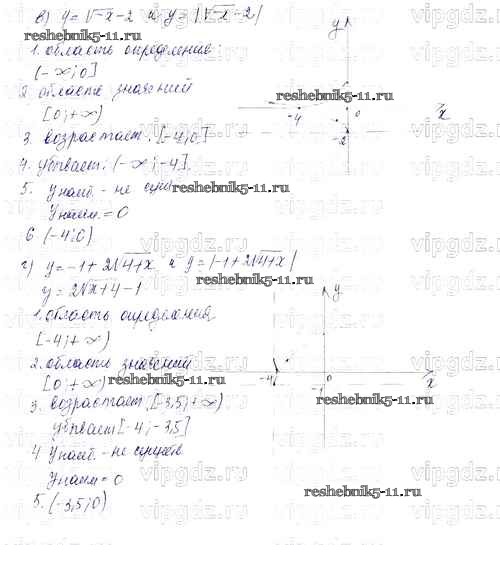 в) y = √-x - 2 и y = |√-x - 2|
1. область определения:
(-∞; 0]
2 область значений
[0; +∞)
3. возрастает: [-4; 0]
4. убывает: (-∞; -4]
5. y наиб - не сущ
y наим. = 0
6 (-4; 0)
г) y = -1 + 2√4+x и y = |-1 + 2√4+x|
y = 2√x+4 - 1
1. область определения
[-4; +∞)
2. область значений
[0; +∞)
3. возрастает [-3,5; +∞)
убывает [-4; -3,5]
4 y наиб - не сущест
y наим = 0
5. (-3,5; 0)
y
-4
0
x
-2
y
-4
0
x
-1
reshebnik5-11.ru
reshebnik5-11.ru
reshebnik5-11.ru
reshebnik5-11.ru
reshebnik5-11.ru
reshebnik5-11.ru
reshebnik5-11.ru
vipgdz.ru
vipgdz.ru
vipgdz.ru
vipgdz.ru
vipgdz.ru
vipgdz.ru